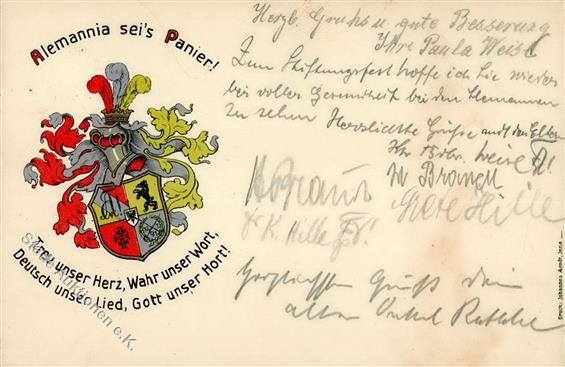 Alemannia sei's Panier!
Treu unser Herz, Wahr unser Wort,
Deutsch unser Lied, Gott unser Hort!
Herzl. Gruss u. gute Besserung
Ihre Paula Weise
Zum Stiftungsfest hoffe ich Sie wieder
bei voller Gesundheit bei den Alemannen
zu sehen Herzlichste Grüsse auch den Eltern
Ihr Weise
W Brandt
Grete Hille
K. Hille
Herzlichsten Gruß dem
alten Onkel
Druck: Johannes Arndt, Jena
Auktionen e.K.